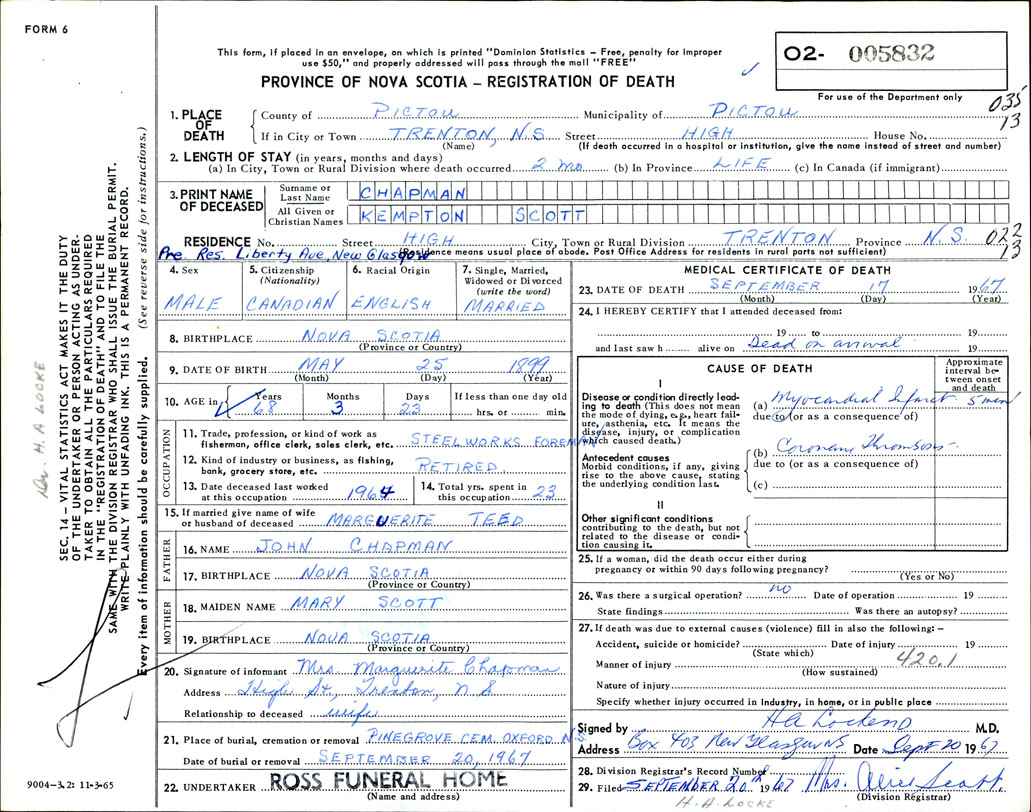 FORM 6
This form, if placed in an envelope, on which is printed "Dominion Statistics – Free, penalty for improper
use $50," and properly addressed will pass through the mail "FREE"
PROVINCE OF NOVA SCOTIA – REGISTRATION OF DEATH
02- 005832
For use of the Department only
035
13
1. PLACE OF DEATH
County of PICTOU Municipality of PICTOU
If in City or Town TRENTON, N.S. Street HIGH House No.
(Name) (If death occurred in a hospital or institution, give the name instead of street and number)
2. LENGTH OF STAY (in years, months and days)
(a) In City, Town or Rural Division where death occurred 2 mo. (b) In Province LIFE (c) In Canada (if immigrant)
3. PRINT NAME OF DECEASED
Surname or Last Name CHAPMAN
All Given or Christian Names KEMPTON SCOTT
RESIDENCE No. Street HIGH City, Town or Rural Division TRENTON Province N.S. 022
13
Pre. Res. Liberty Ave, New Glasgow
(Residence means usual place of abode. Post Office Address for residents in rural parts not sufficient)
4. Sex
MALE
5. Citizenship (Nationality)
CANADIAN
6. Racial Origin
ENGLISH
7. Single, Married, Widowed or Divorced (write the word)
MARRIED
8. BIRTHPLACE NOVA SCOTIA
(Province or Country)
9. DATE OF BIRTH MAY 25 1899
(Month) (Day) (Year)
10. AGE in Years Months Days If less than one day old
68 3 23 hrs. or min.
OCCUPATION
11. Trade, profession, or kind of work as
fisherman, office clerk, sales clerk, etc. STEELWORKS FOREMAN
12. Kind of industry or business, as fishing,
bank, grocery store, etc. RETIRED
13. Date deceased last worked
at this occupation 1964
14. Total yrs. spent in
this occupation 23
15. If married give name of wife
or husband of deceased MARGUERITE TEED
FATHER
16. NAME JOHN CHAPMAN
17. BIRTHPLACE NOVA SCOTIA
(Province or Country)
MOTHER
18. MAIDEN NAME MARY SCOTT
19. BIRTHPLACE NOVA SCOTIA
(Province or Country)
20. Signature of informant Mrs. Marguerite Chapman
Address High St., Trenton, N S
Relationship to deceased wife
21. Place of burial, cremation or removal PINEGROVE CEM. OXFORD N.S.
Date of burial or removal SEPTEMBER 20, 1967
22. UNDERTAKER ROSS FUNERAL HOME
(Name and address)
MEDICAL CERTIFICATE OF DEATH
23. DATE OF DEATH SEPTEMBER 17 1967
(Month) (Day) (Year)
24. I HEREBY CERTIFY that I attended deceased from:
19 to 19
and last saw h alive on Dead on arrival 19
CAUSE OF DEATH
Approximate interval between onset and death
I
Disease or condition directly leading to death (This does not
mean the mode of dying, e.g., heart failure, asthenia, etc. It means the
disease, injury, or complication which caused death.)
(a) Myocardial Infarct 5 min
due to (or as a consequence of)
Antecedent causes
Morbid conditions, if any, giving
rise to the above cause, stating
the underlying condition last.
(b) Coronary Thrombosis
due to (or as a consequence of)
(c)
II
Other significant conditions
contributing to the death, but not
related to the disease or condition causing it.
25. If a woman, did the death occur either during
pregnancy or within 90 days following pregnancy?
(Yes or No)
26. Was there a surgical operation? no Date of operation 19
State findings Was there an autopsy?
27. If death was due to external causes (violence) fill in also the following: –
Accident, suicide or homicide? Date of injury 19
(State which)
Manner of injury 420.1
(How sustained)
Nature of injury
Specify whether injury occurred in Industry, in home, or in public place
Signed by M.D.
Address Box 403 New Glasgow NS Date Sept 20 1967
28. Division Registrar's Record Number
29. Filed SEPTEMBER 20 1967 Mrs. Alice Scott
(Division Registrar)
H. A. LOCKE
Dr. H. A LOCKE
SEC. 14 – VITAL STATISTICS ACT MAKES IT THE DUTY
OF THE UNDERTAKER OR PERSON ACTING AS UNDER-
TAKER TO OBTAIN ALL THE PARTICULARS REQUIRED
IN THE "REGISTRATION OF DEATH" AND TO FILE THE
SAME WITH THE DIVISION REGISTRAR WHO SHALL ISSUE THE BURIAL PERMIT.
WRITE PLAINLY WITH UNFADING INK. THIS IS A PERMANENT RECORD.
Every item of information should be carefully supplied. (See reverse side for instructions.)
9004-3.2: 11-3-65